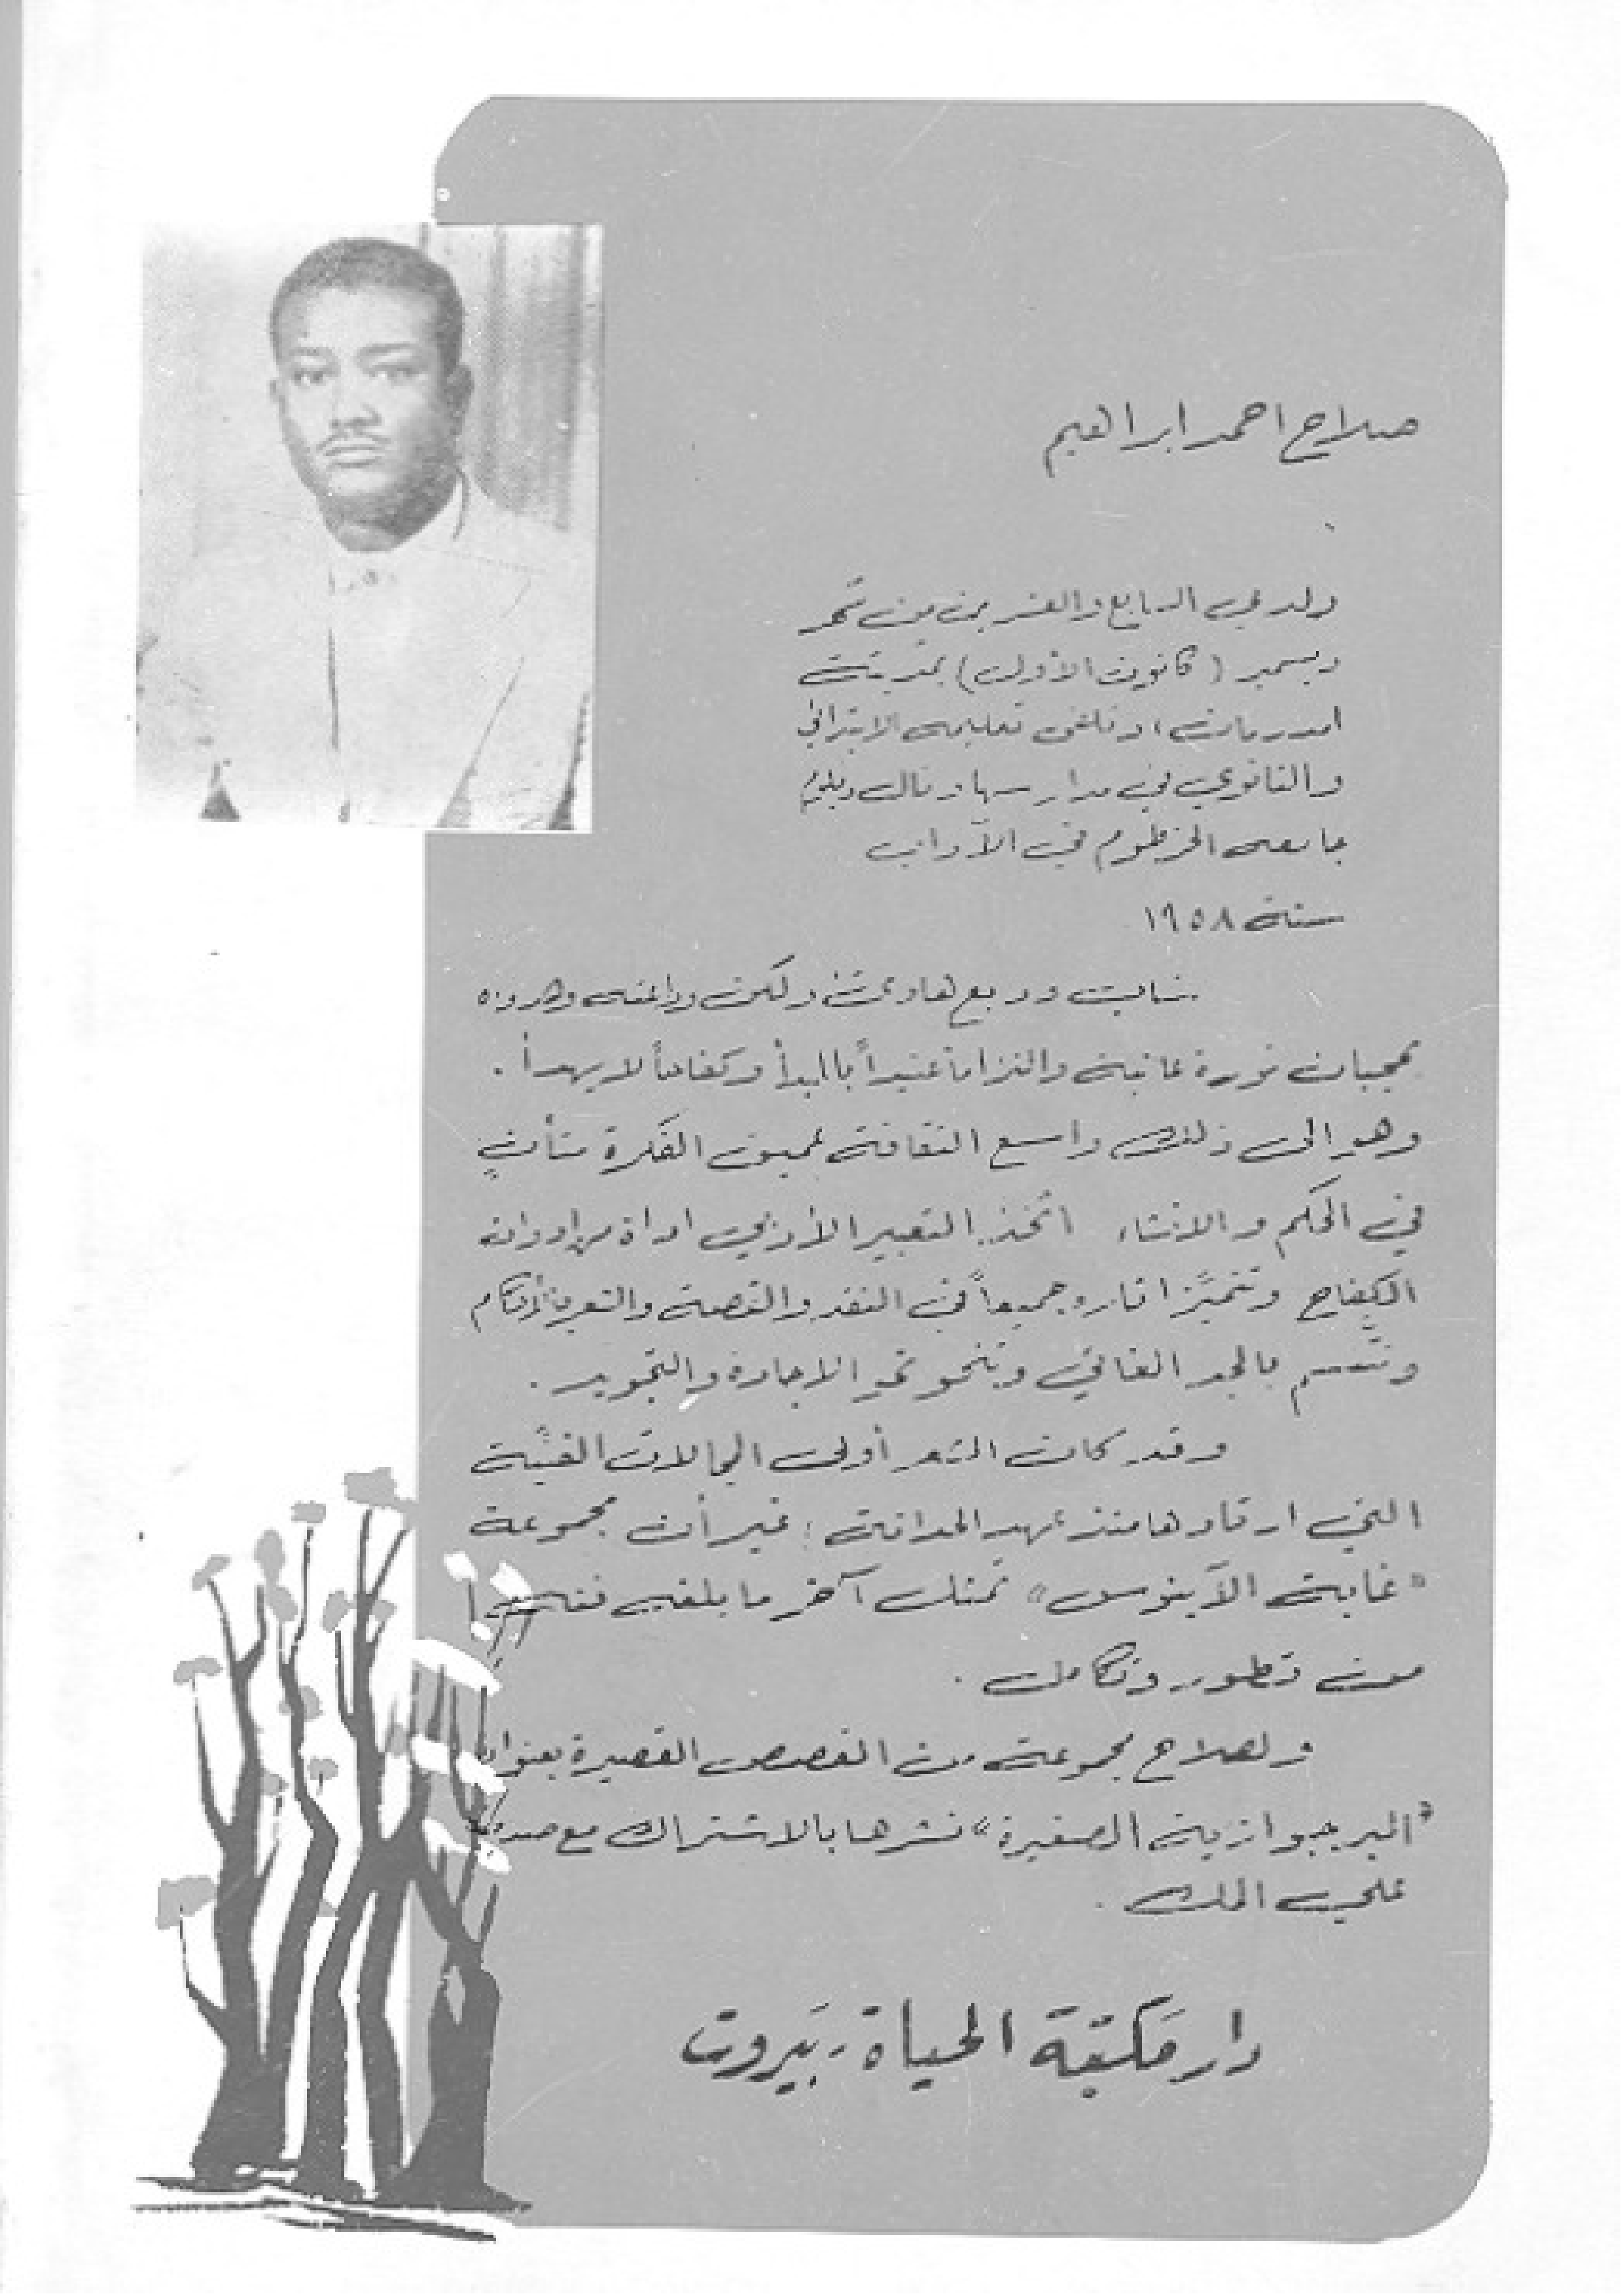 صلاح احمد ابراهيم
ولد في السابع والعشرين من شهر
ديسمبر (كانون الأول) بمدينة
امدرمان، وتلقى تعليمه الابتدائي
والثانوي في مدارسها ونال دبلوم
جامعه الخرطوم في الآداب
سنة ١٩٥٨
شاب وديع هادئ ولكن وداعته وهدوءه
تحجبان ثورة عاتية والتزاماً عنيداً بالمبدأ وكفاحاً لا يهدأ.
وهو الى ذلك واسع الثقافة عميق الفكرة متأنٍ
في الحكم والانشاء اتخذ التعبير الأدبي اداة من ادوات
الكفاح وتتميّز اثاره جميعاً في النقد والقصة والشعر
وتتّسم بالجد الفائق وتنحو نحو الاجادة والتجويد.
وقد كان الشعر أولى المجالات الفنيّة
التي ارتادها منذ عهد الحداثة؛ غير أن مجموعة
«غابة الآبنوس» تمثل آخر ما بلغه فنه
من تطور وتكامل.
ولصلاح مجموعة من القصص القصيرة بعنوان
"البرجوازية الصغيرة" نشرها بالاشتراك مع صديقه
علي المك.
دار مكتبة الحياة - بيروت